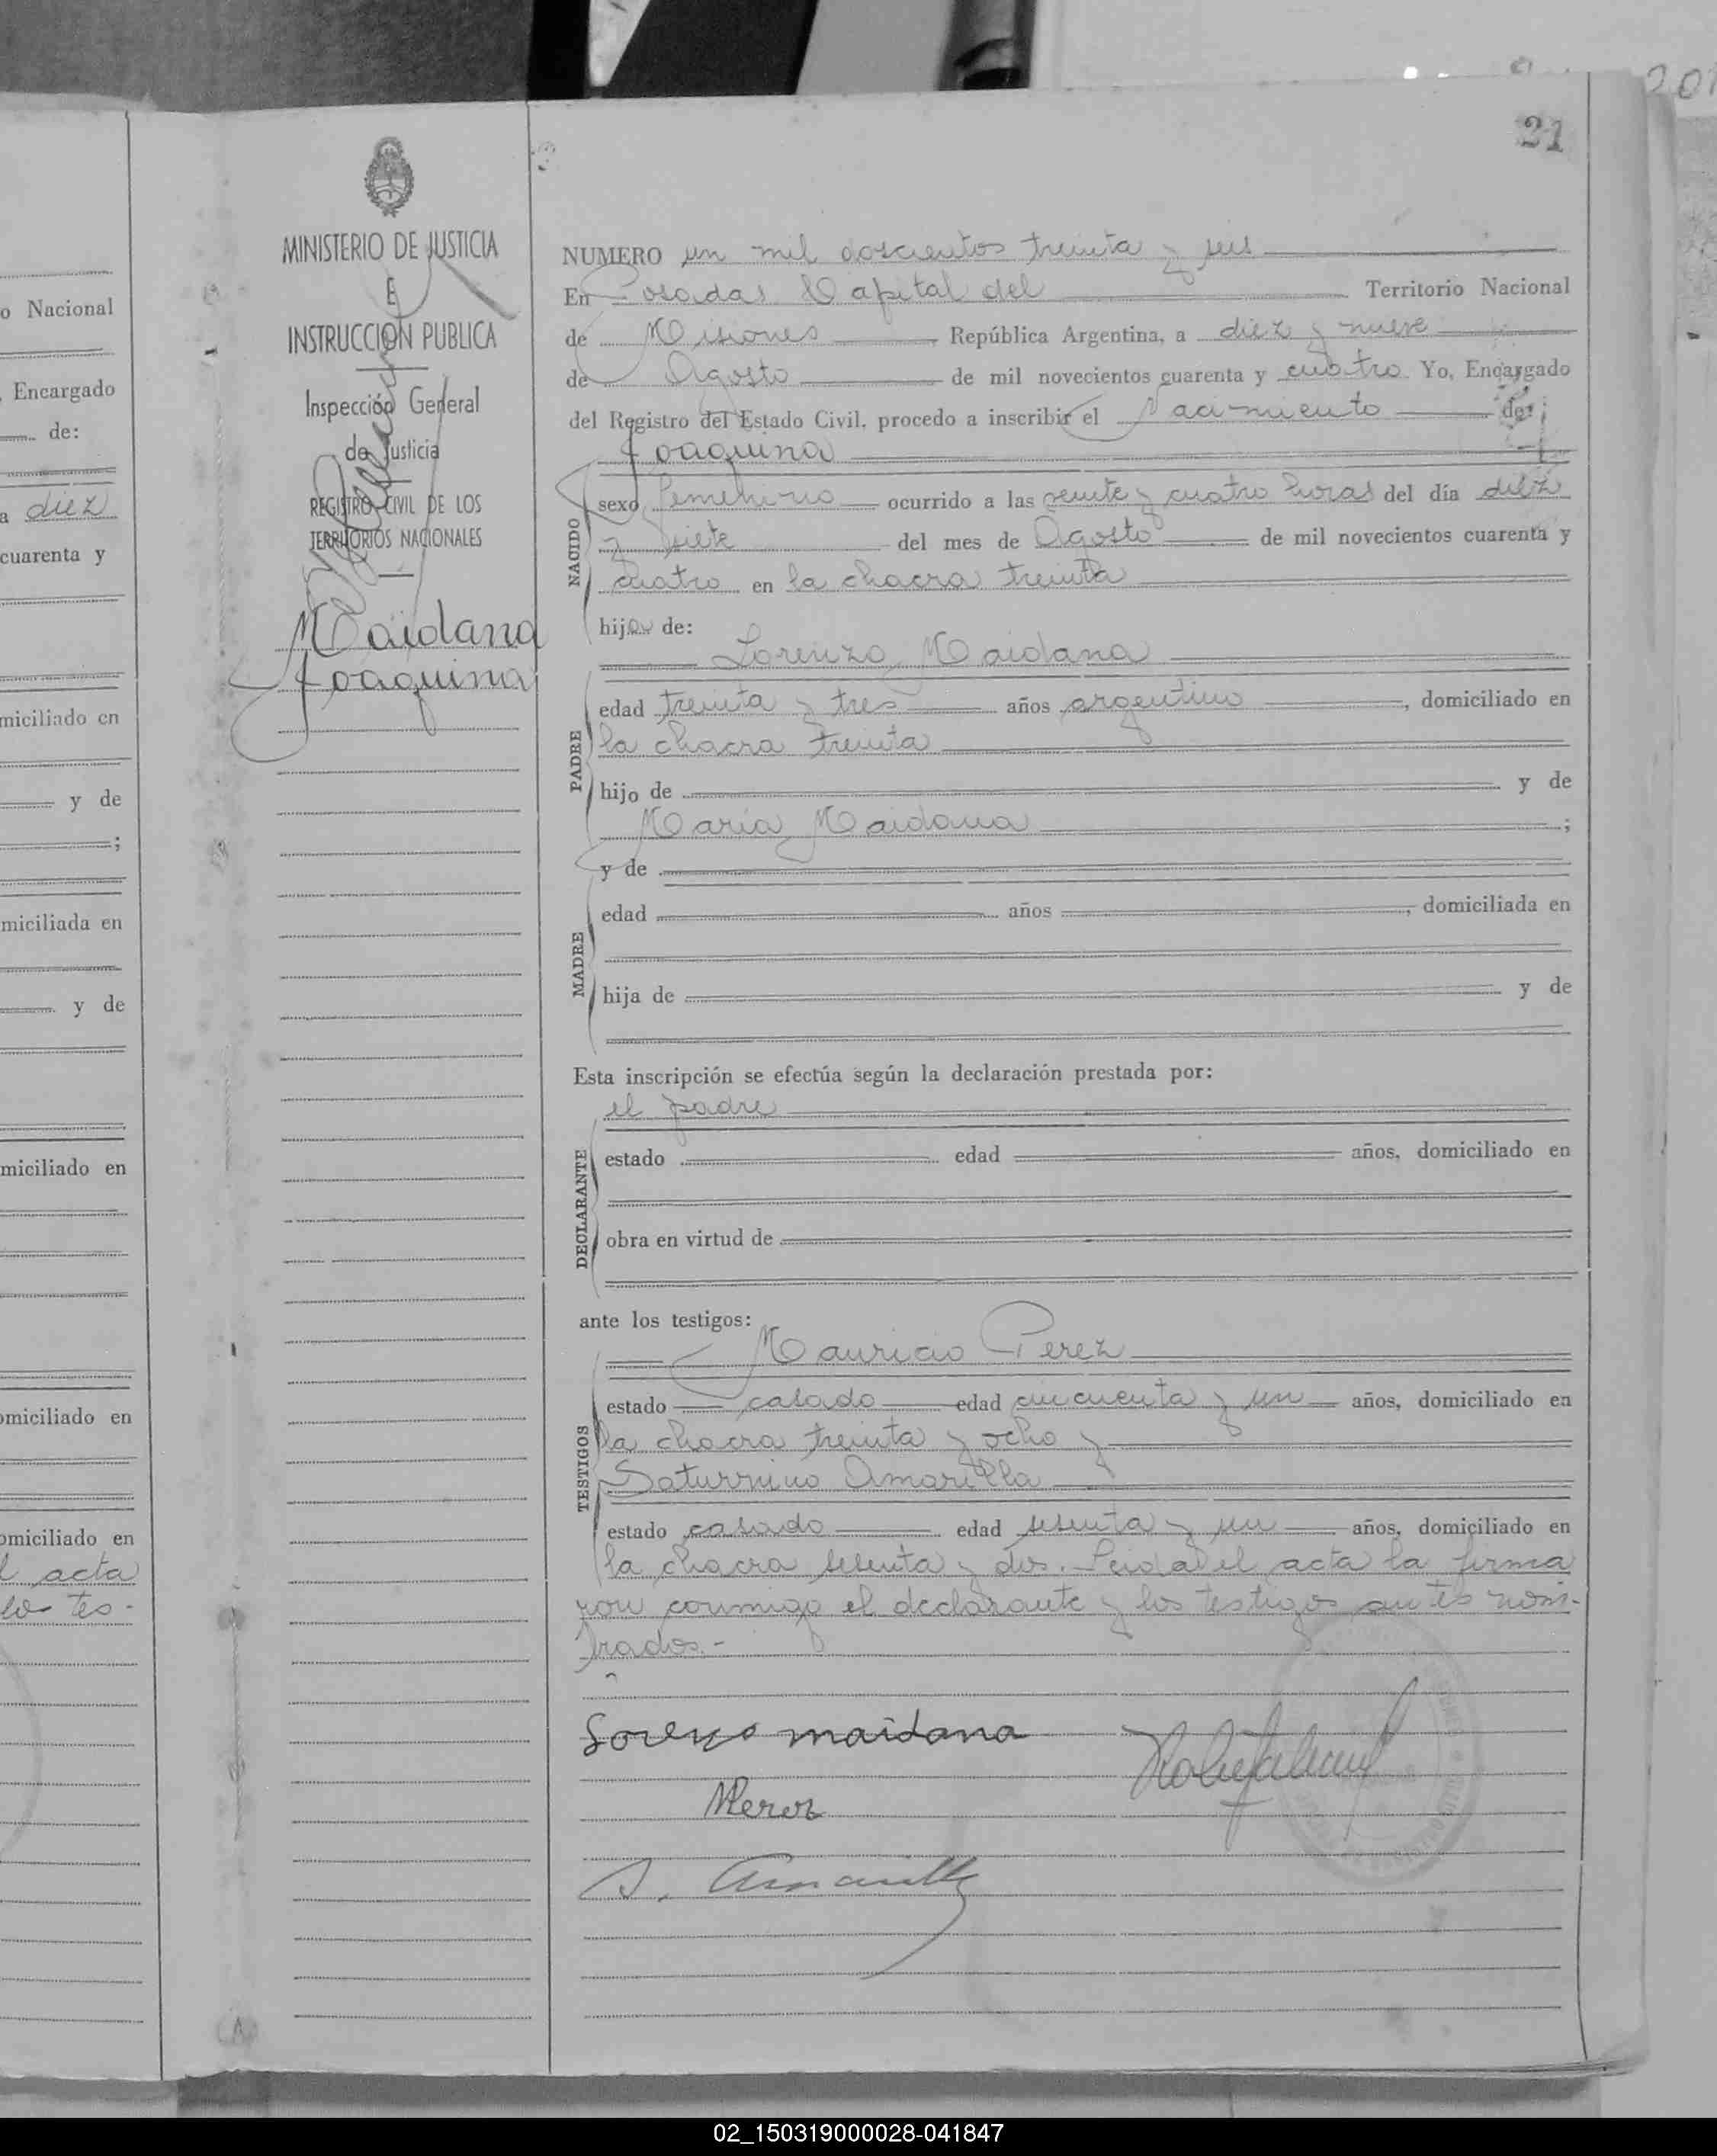 21
MINISTERIO DE JUSTICIA
E
INSTRUCCION PUBLICA
Inspección General
de Justicia
REGISTRO CIVIL DE LOS
TERRITORIOS NACIONALES
Maidana
Joaquina
NUMERO un mil doscientos treinta y seis
En Posadas Capital del Territorio Nacional
de Misiones República Argentina, a diez y nueve
de Agosto de mil novecientos cuarenta y cuatro Yo, Encargado
del Registro del Estado Civil, procedo a inscribir el Nacimiento de:
Joaquina
NACIDO
sexo femenino ocurrido a las veinte y cuatro horas del día diez
y siete del mes de Agosto de mil novecientos cuarenta y
cuatro en la chacra treinta
hija de:
Lorenzo Maidana
PADRE
edad treinta y tres años argentino, domiciliado en
la chacra treinta
hijo de y de
María Maidana ;
y de
MADRE
edad años , domiciliada en
hija de y de
Esta inscripción se efectúa según la declaración prestada por:
el padre
DECLARANTE
estado edad años, domiciliado en
obra en virtud de
ante los testigos:
Mauricio Perez
TESTIGOS
estado casado edad cincuenta y un años, domiciliado en
la chacra treinta y ocho y
Saturnino Amarilla
estado casado edad sesenta y un años, domiciliado en
la chacra sesenta y dos. Leida el acta la firma
ron conmigo el declarante y los testigos antes nom-
brados.-
Lorenzo maidana
MPerez
S. Amarilla
o Nacional
, Encargado
de:
a diez
cuarenta y
miciliado en
y de
;
miciliada en
y de
miciliado en
omiciliado en
omiciliado en
l acta
los tes-
02_150319000028-041847